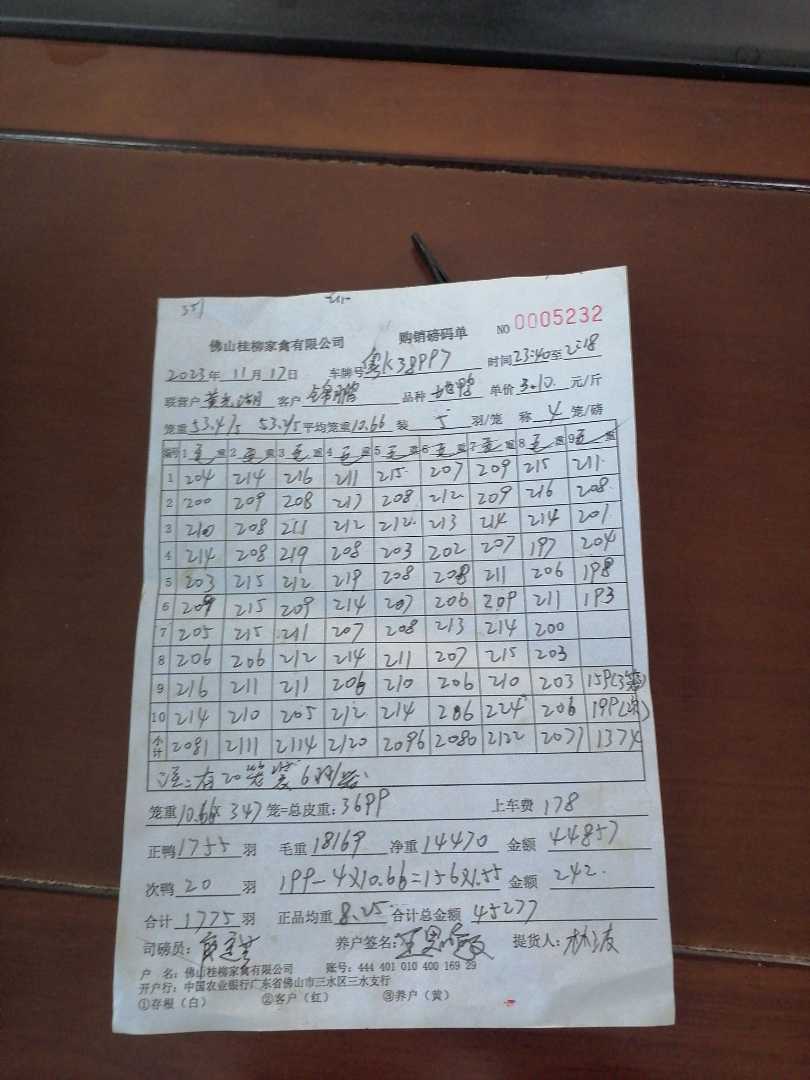 351
佛山桂柳家禽有限公司 购销磅码单 NO 0005232
2023年 11月 17日 车牌号 粤K38997 时间23:40至2:18
联营户 黄光湖 客户 锦鹏 品种 单价 3.10 元/斤
笼重 53.475 53.45 平均笼重10.66 装 5 羽/笼 称 4 笼/磅
编号 1 毛重 2 毛重 3 毛重 4 毛重 5 毛重 6 毛重 7 毛重 8 毛重 9 毛重
1 204 214 216 211 215 207 209 215 211
2 200 209 208 213 208 212 209 216 208
3 210 208 211 212 212 213 214 214 201
4 214 208 219 208 203 202 207 197 204
5 203 215 212 219 208 208 211 206 198
6 209 215 209 214 207 206 209 211 193
7 205 215 211 207 208 213 214 200
8 206 206 212 214 211 207 215 203
9 216 211 211 206 210 206 210 203 159(3笼)
10 214 210 205 212 214 206 224 206 199(次)
小计 2081 2111 2114 2120 2096 2080 2122 2071 1374
注:有20笼装6羽/笼.
笼重10.66×347笼=总皮重:3699 上车费 178
正鸭1755羽 毛重 18169 净重 14470 金额 44857
次鸭 20 羽 199-4×10.66=156×1.55 金额 242.
合计 1775 羽 正品均重 8.25 合计总金额 45277
司磅员: 养户签名: 提货人: 林波
户 名:佛山桂柳家禽有限公司 账号:444 401 010 400 169 29
开户行:中国农业银行广东省佛山市三水区三水支行
①存根(白) ②客户(红) ③养户(黄)